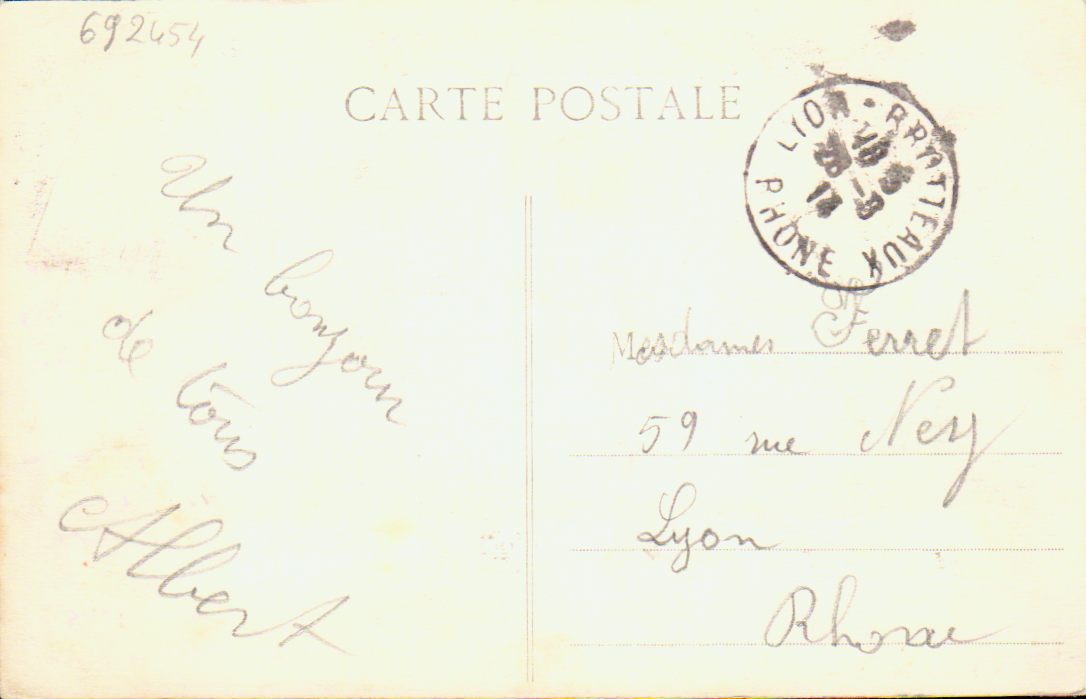 692454
CARTE POSTALE
LYON - BROTTEAUX
RHONE
Un bonjour
de tous
Albert
Mesdames Ferret
59 rue Ney
Lyon
Rhone